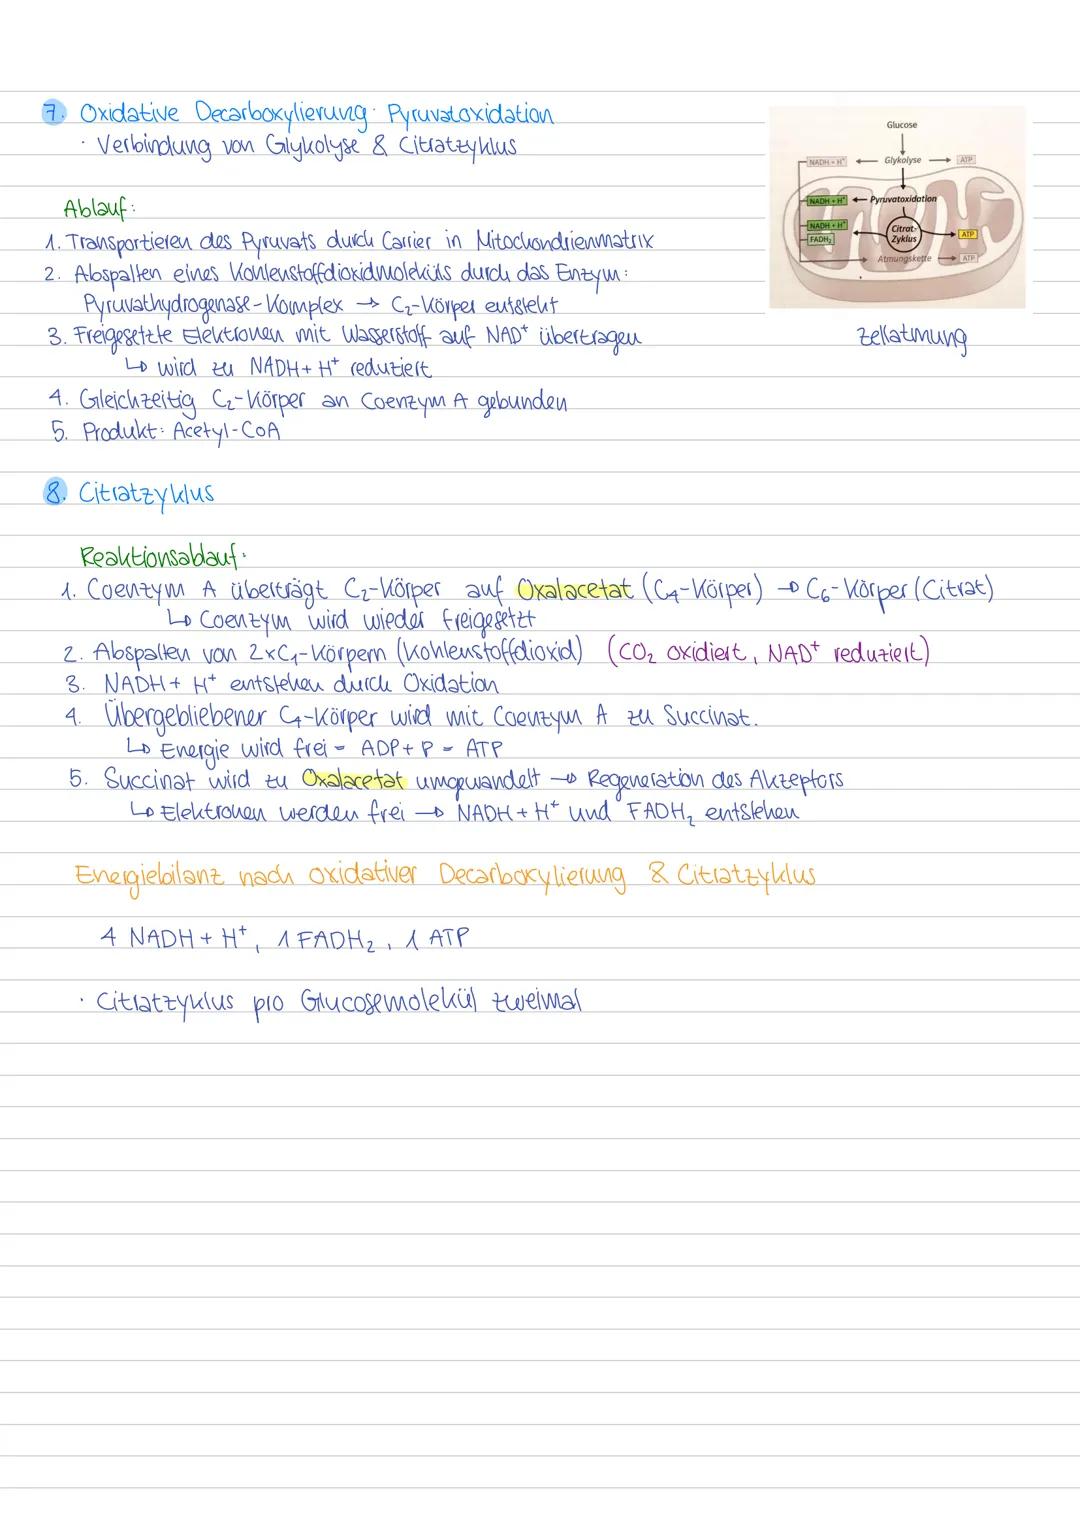 7. Oxidative Decarboxylierung: Pyruvatoxidation
· Verbindung von Glykolyse & Citratzyklus
Glucose
NADH + H⁺ Glykolyse ATP
NADH + H⁺ Pyruvatoxidation
NADH + H⁺
FADH₂
Citrat-
Zyklus
ATP
Atmungskette ATP
Zellatmung
Ablauf:
1. Transportieren des Pyruvats durch Carrier in Mitochondrienmatrix
2. Abspalten eines Kohlenstoffdioxidmoleküls durch das Enzym:
Pyruvathydrogenase-Komplex → C₂-Körper entsteht
3. Freigesetzte Elektronen mit Wasserstoff auf NAD⁺ übertragen
↳ wird zu NADH + H⁺ reduziert
4. Gleichzeitig C₂-Körper an Coenzym A gebunden
5. Produkt: Acetyl-CoA
8. Citratzyklus
Reaktionsablauf:
1. Coenzym A überträgt C₂-Körper auf Oxalacetat (C₄-Körper) → C₆-Körper (Citrat)
↳ Coenzym wird wieder freigesetzt
2. Abspalten von 2xC₁-Körpern (Kohlenstoffdioxid) (CO₂ oxidiert, NAD⁺ reduziert)
3. NADH + H⁺ entstehen durch Oxidation
4. Übergebliebener C₄-Körper wird mit Coenzym A zu Succinat.
↳ Energie wird frei = ADP + P = ATP
5. Succinat wird zu Oxalacetat umgewandelt → Regeneration des Akzeptors
↳ Elektronen werden frei → NADH + H⁺ und FADH₂ entstehen
Energiebilanz nach oxidativer Decarboxylierung & Citratzyklus
4 NADH + H⁺, 1 FADH₂, 1 ATP
· Citratzyklus pro Glucosemolekül zweimal